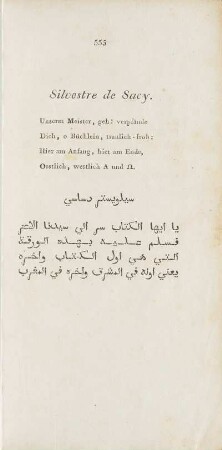 555
Silvestre de Sacy.
Unserm Meister, geh! verpfände
Dich, o Büchlein, traulich-froh;
Hier am Anfang, hier am Ende,
Oestlich, westlich A und Ω.
سيلويستر دساسي
يا ايها الكتاب سر الي سيدنا الاعز
فسلم عليه بهذه الورقة
التي هي اول الكتاب واخره
يعني اوله في المشرق واخره في المغرب